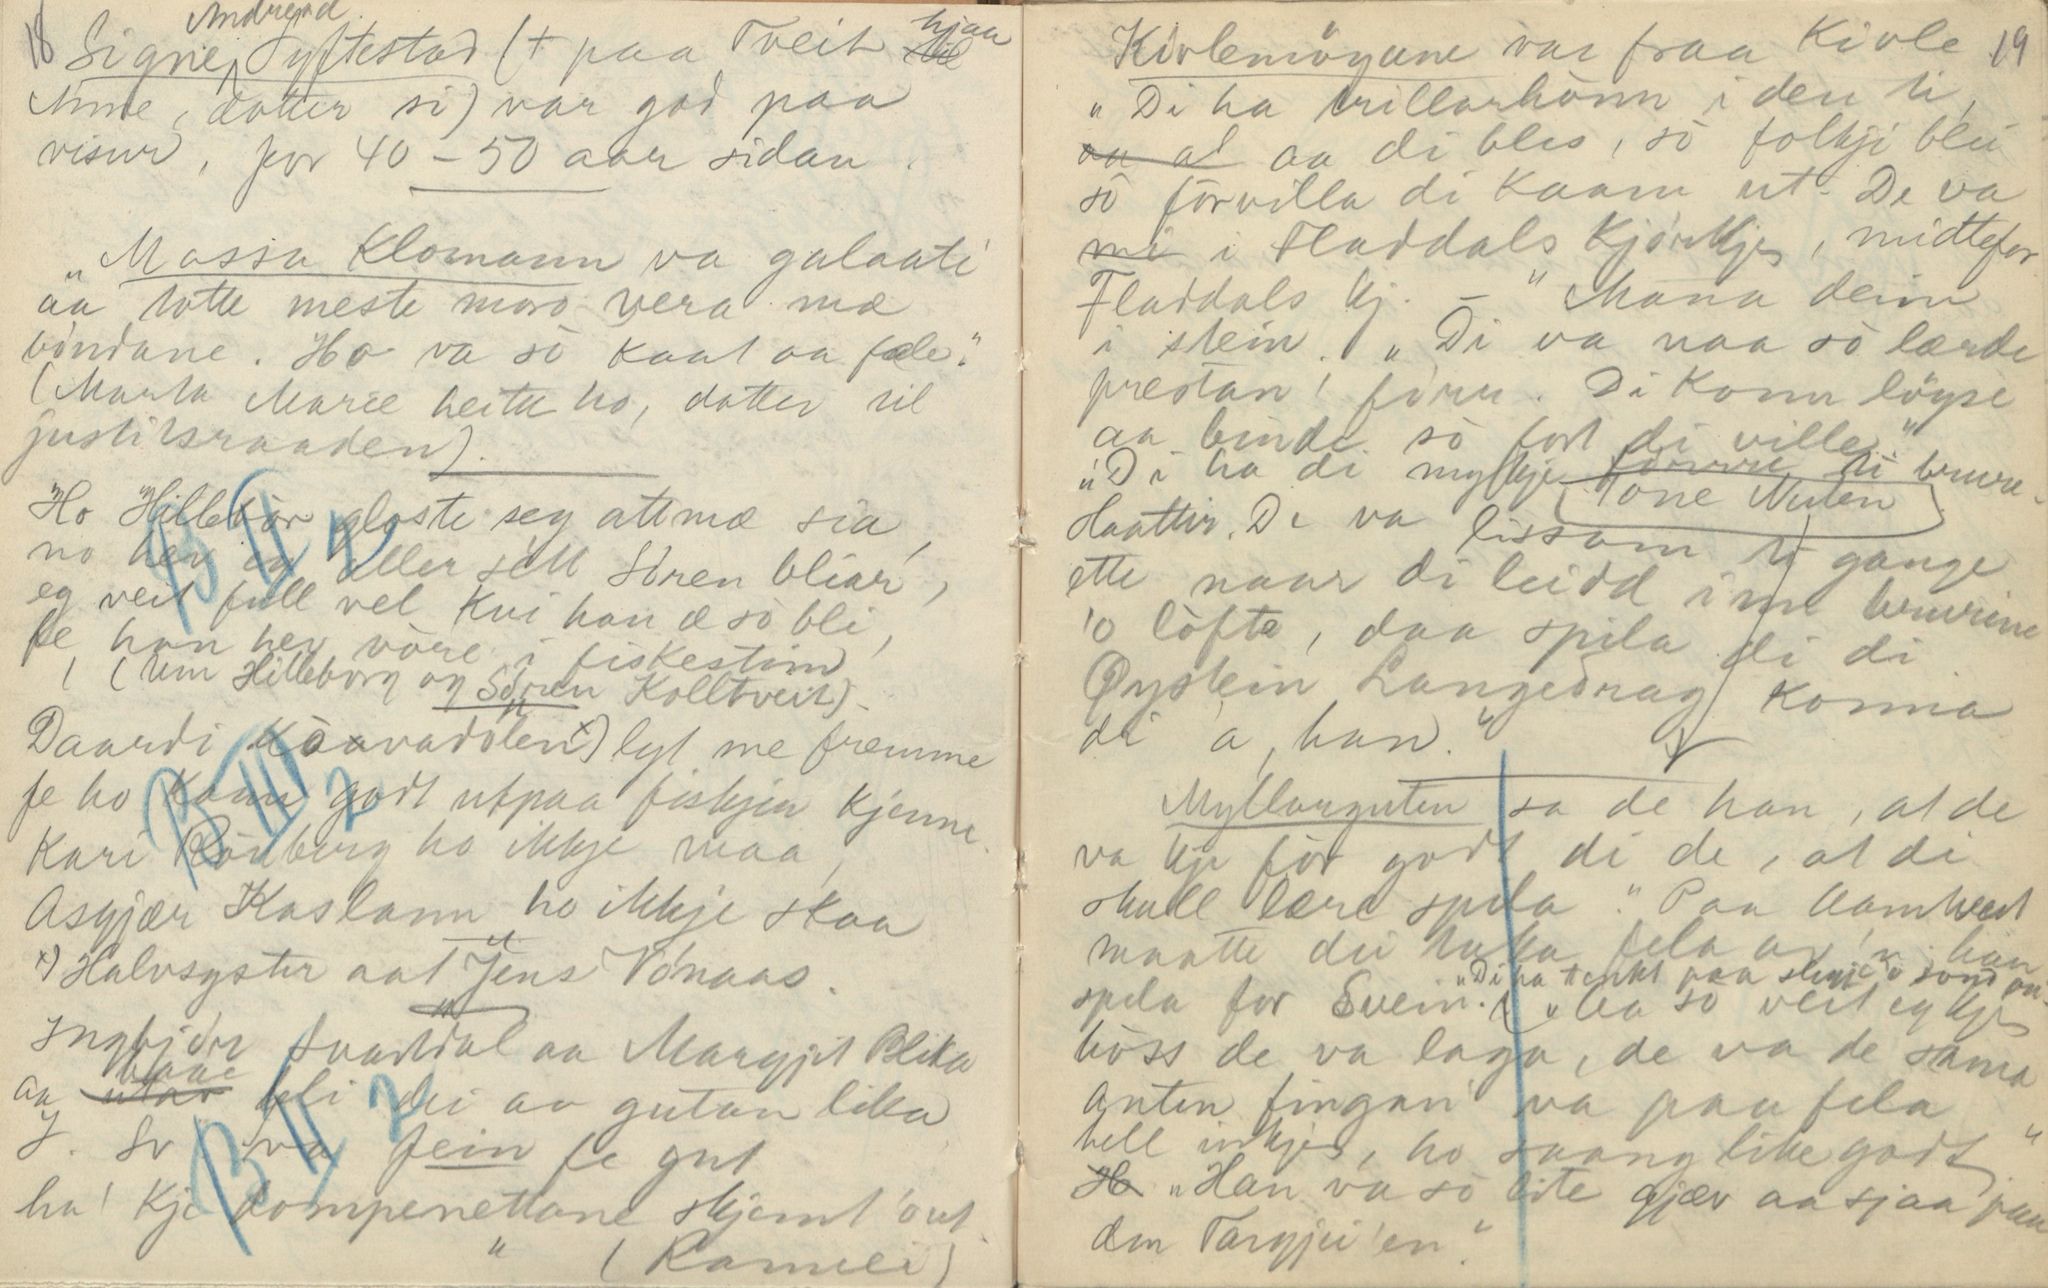 18 Signe Andresd. Syftestad (+ paa Tveit hjaa
Anne, dotter si) var god paa
visur, for 40-50 aar sidan.
"Massa Klomann va galaati
aa totte meste moro vera mæ
bóndane. Ho va só kaat aa fæle."
(Marta Marie heitte ho, dotter til
justitsraaden).
Ho Hillebór gloste seg attmæ sia,
no hev eg aller sétt Sóren bliar,
eg veit full vel kvi han æ só bli,
fe han hev vóre i fiskestim
(Um Hilleborg og Sóren Kolltveit).
Daardi Kaavadólen x) lyt me fremme
fe ho kann godt utpaa fiskjen kjenne.
Kari Rónberg ho ikkje maa,
Asgjær Kaslann ho ikkje skaa
x) Halvsyster aat Jens Vónaas.
Ingbjór Svartdal aa Margjit Blika
aa baae bli dei av gutan lika
I. Sv va fein fe gut
ha' kje kompenettane skjemt 'o ut.
" (Ramlei)
B II 2
B III 2
B II 2
Kivlemöyane var fraa Kivle 19
"Di ha trillarhónn i den ti,
aa di bles, só folkji blei
só forvilla di kaam ut. De va
i Fladdals kjórkje, midtefor
Fladdals kj. - "Mana deim
i stein. "Di va naa só lærde
prestan' fórr. Di konn löyse
aa binde só fort di ville."
"Di ha di mykje ti brure-
slaattir. De va lissom ti gange
Tone Nuten
ette naar di leidd inn brurine
'o lófte, daa spila di di
Øystein Langedrag konna
di 'a, han."
Myllarguten sa de han, at de
va kje fór godt di de, at di
skull lære spila." Paa Aamtveit
maatte dei taka fela av 'n, han
spila for Svein. "Aa só veit eg kje
hóss de va laga, de va de sama
anten fingan' va paa fela
hell inkje, ho saang like godt"
"Han va só lite gjæv aa sjaa paa
den Targjei'en."